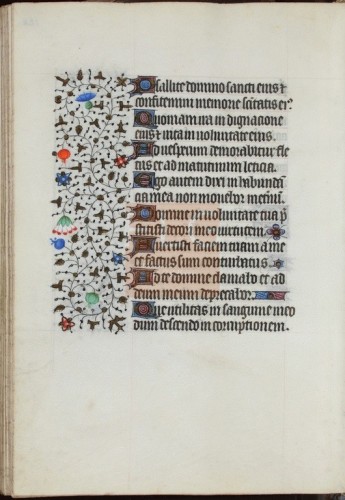 Psallite domino sancti eius et
confitemini memorie scitatis ei9.
Quoniam ira in indignacione
eius et uita in uoluntate eius.
Ad uesperum demorabitur fle
tus et ad matutinum leticia.
Ego autem dixi in habundan
cia mea non mouebor
Domine in uoluntate tua p
stitisti decori meo uirtutem.
Auertisti faciem tuam a me
et factus sum conturbatus.
Ad te domine clamabo et ad
deum meum deprecabor.
Que utilitas in sanguine meo
dum descendo in corruptionem.